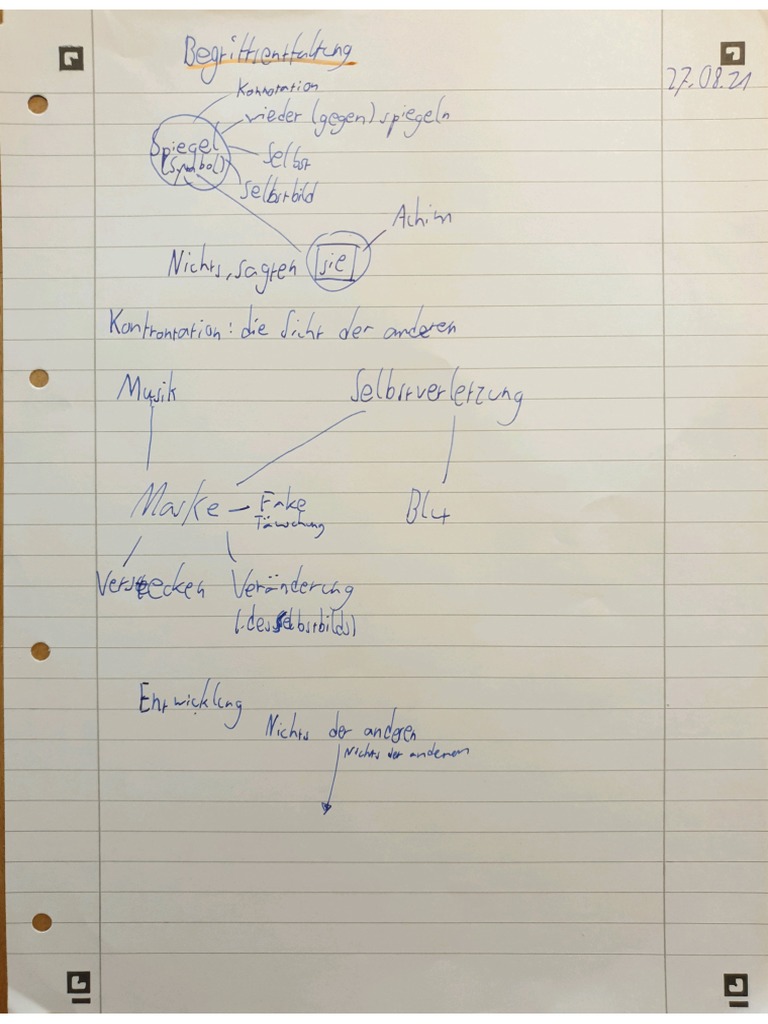 Begriffsentfaltung
27.08.21
Konnotation
wieder (gegen) spiegeln
Spiegel
(Symbol)
Selbst
Selbstbild
Achim
Nichts, sagten sie
Konfrontation: die Sicht der anderen
Musik Selbstverletzung
Maske – Fake Blut
Täuschung
Verstecken Veränderung
(des Selbstbilds)
Entwicklung
Nichts der anderen
Nichts der anderen